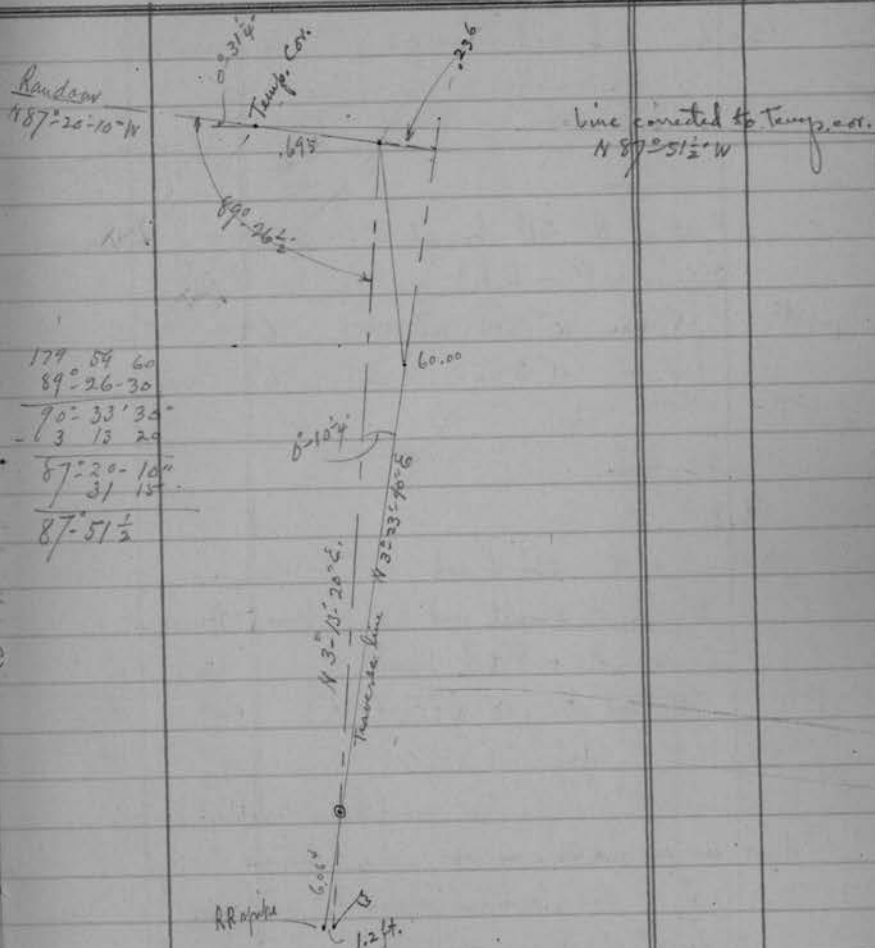 0°-31'4
Temp. Cor.
.236
Random
N 87°-20'-10" W
.695
Line corrected to Temp. cor.
N 87°-51 1/2' W
89°-26 1/2'
60.00
179 59 60
89°-26-30
90°-33'30"
- 3 13 20
87°-20-10"
31 15
87°-51 1/2
0°-10'4
N 3°-13'-20" E.
Traverse line N 3°-23'-40" E
6.064
RR spike
1.2 ft.